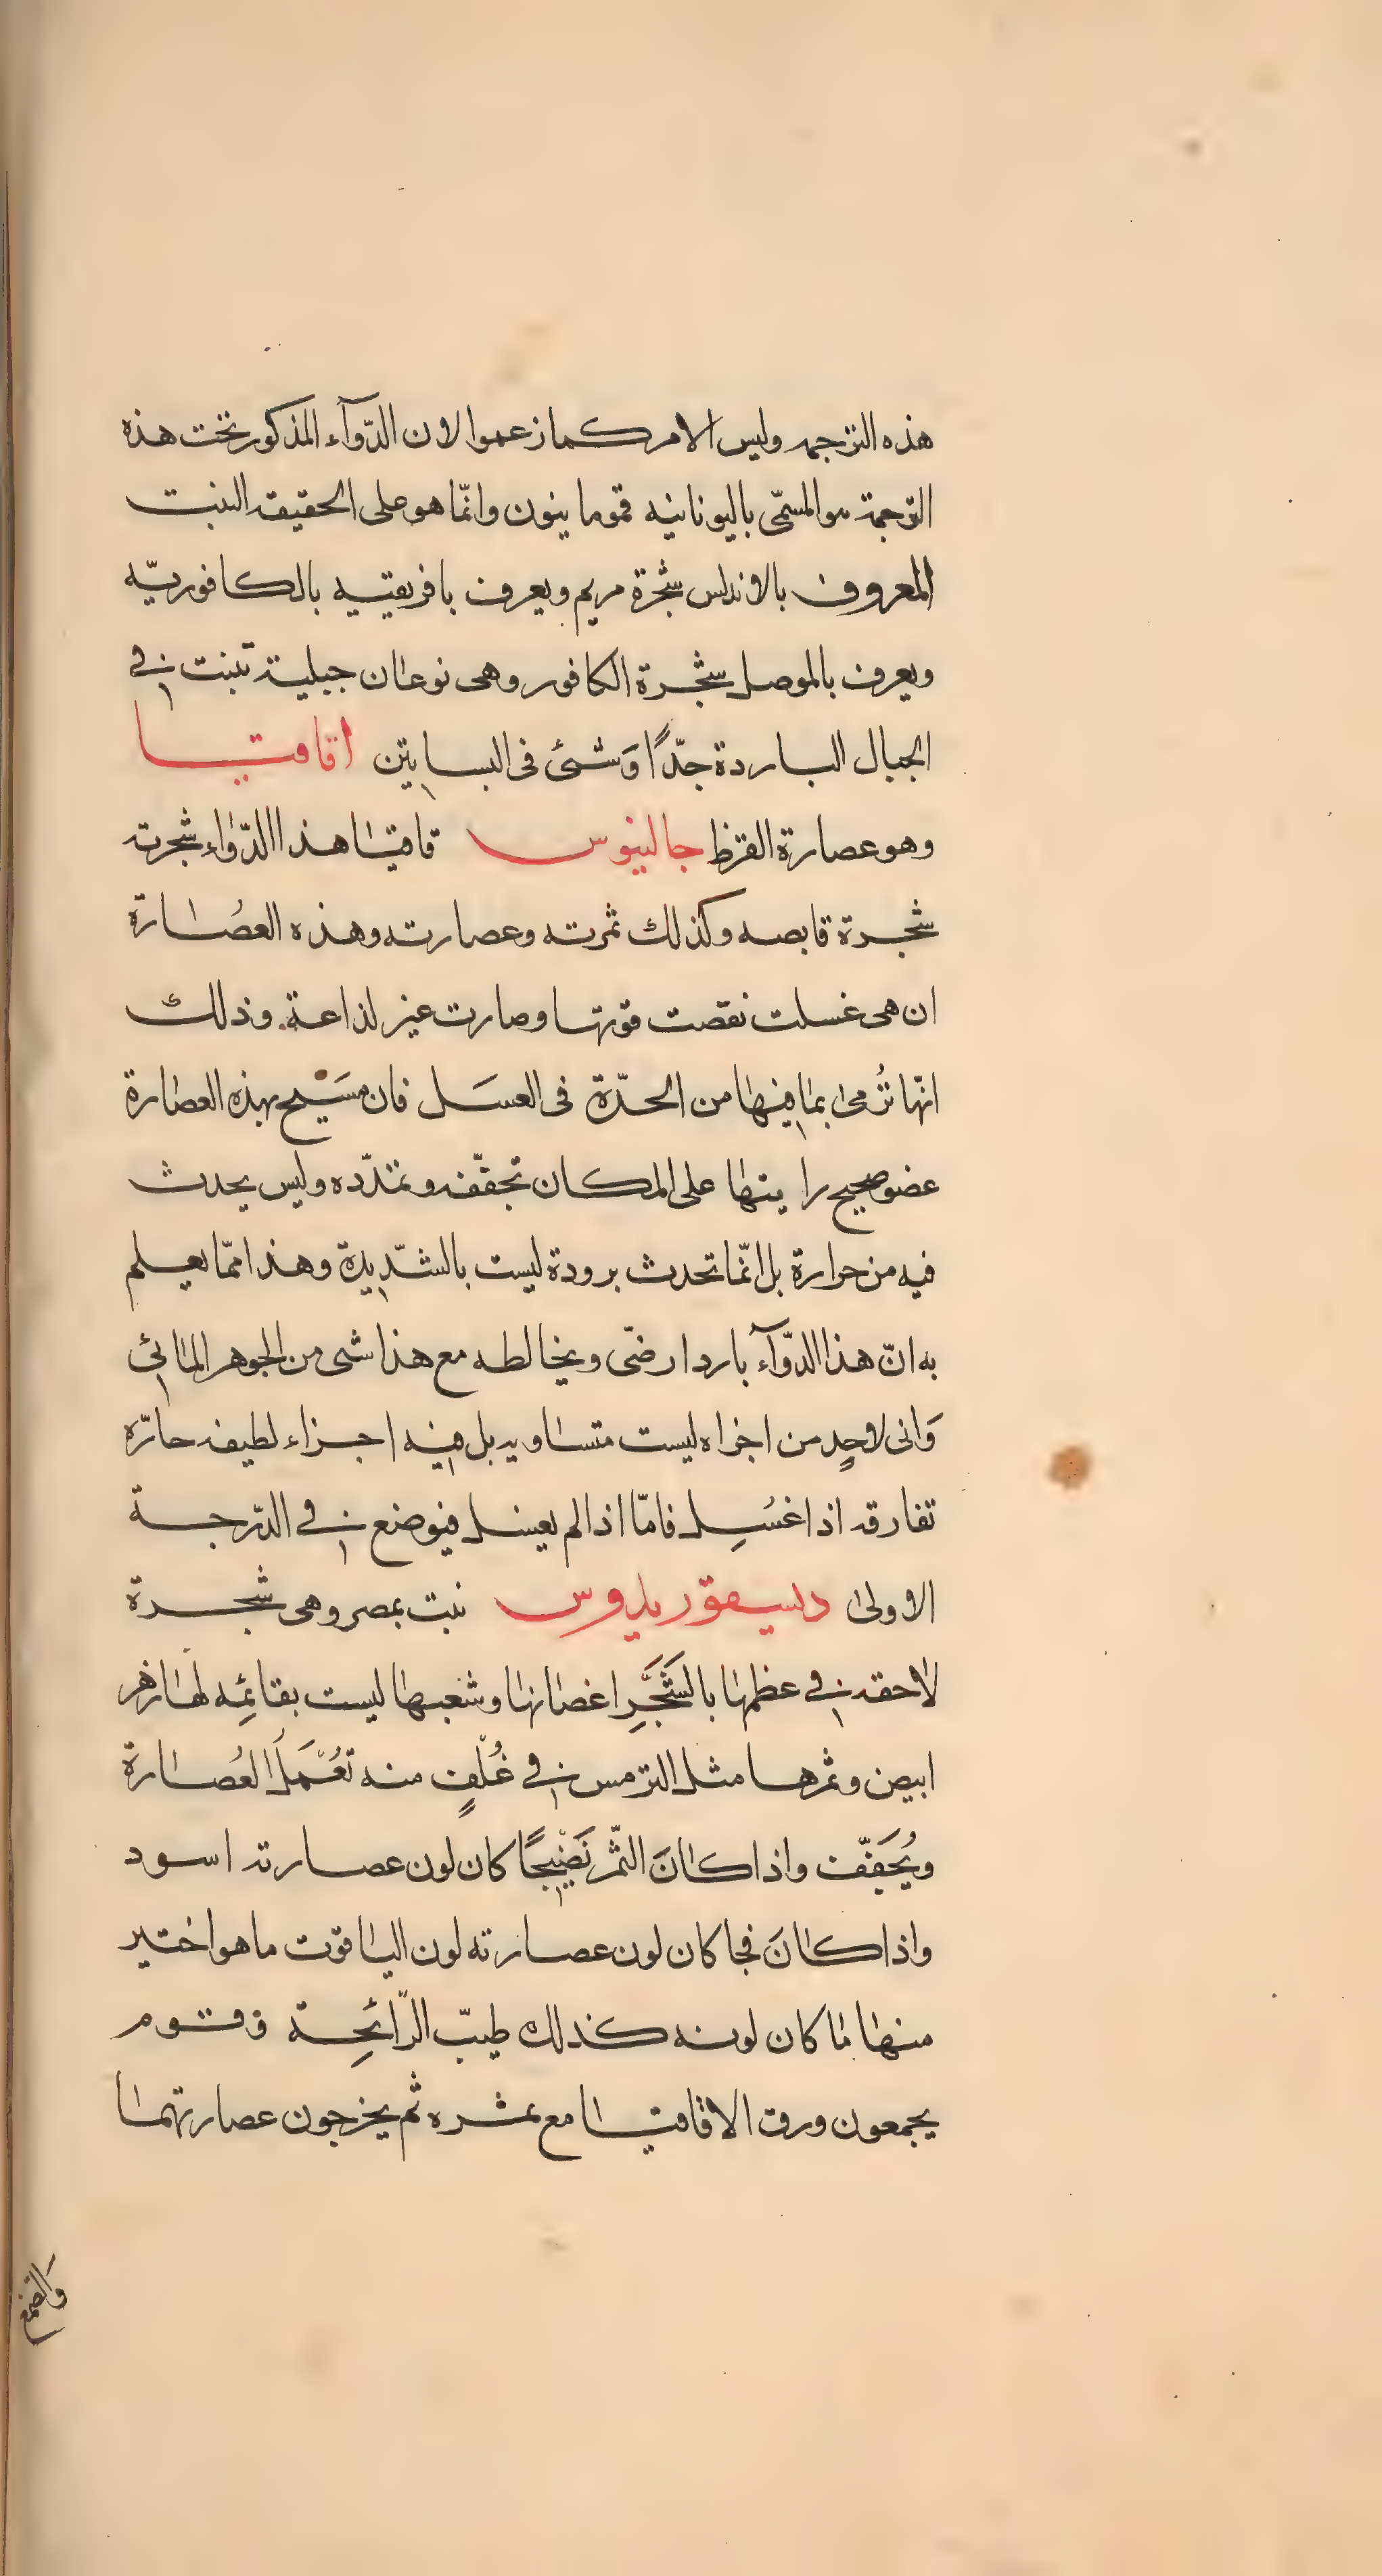 هذه الترجمه وليس الامر كما زعموا لان الدّوآء المذكور تحت هذه
الترجمة هو المسمّى باليونانيه قموما ينون وانّما هو على الحقيقه النبت
المعروف بالاندلس شجرة مريم ويعرف بافريقيه بالكافوريّه
ويعرف بالموصل سجرة الكافور وهى نوعان جبلية تنبت في
الجبال الباردة جدّاً وَشئ فى البساتين اقاقيا
وهو عصارة القرظ جالينوس قاقيا هذا الدّواء شجرته
شجرة قابصه وكذلك ثمرته وعصارته وهذه العصُارة
ان هى غسلت نقصت قوتها وصارت غير لذاعة وذلك
انّها تُرمى بما فيها من الحدّة فى العسَل فان مسَيح بهذه العصارة
عضو صحيح رايتها على المكان تجفّفه وتمدّده وليس يحدث
فيه من حرارة بل انّما تحدث برودة ليست بالشّديدة وهذا ممّا يعلم
به انّ هذا الدّوآء بارد ارضّى ويخالطه مع هذا شى من الجوهر المائي
وَانى لاوحدٍ من اجزاه ليست متساويه بل فيه اجزاء لطيفه حارّه
تفارقه اذا غسُلِ فامّا اذا لم يعسل فيوضع في الدّرجة
الاولى دلسيقوريدوس نبت بمصر وهى شجرة
لاحقه في عظمها بالشَجَّرِ اغصانها وشعبها ليست بقائمِه لهَا زهر
ابيض وثمرها مثل الترمس في غُلْفٍ منه تعُمَلُ العُصارة
ويُحَفَّف واذا كانَ الثّمر نَضْيجًا كان لون عصارته اسود
واذا كانَ فجا كان لون عصارته لون الياقوت ما هو اختير
منها ما كان لونه كذلك طيبّ الرّائحِة وقوم
يجمعون ورق الاقاقيا مع ثمره ثم يخرجون عصارتهما
وَالصّمغ